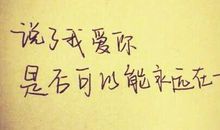 说了我爱你
是否可以能永远在一